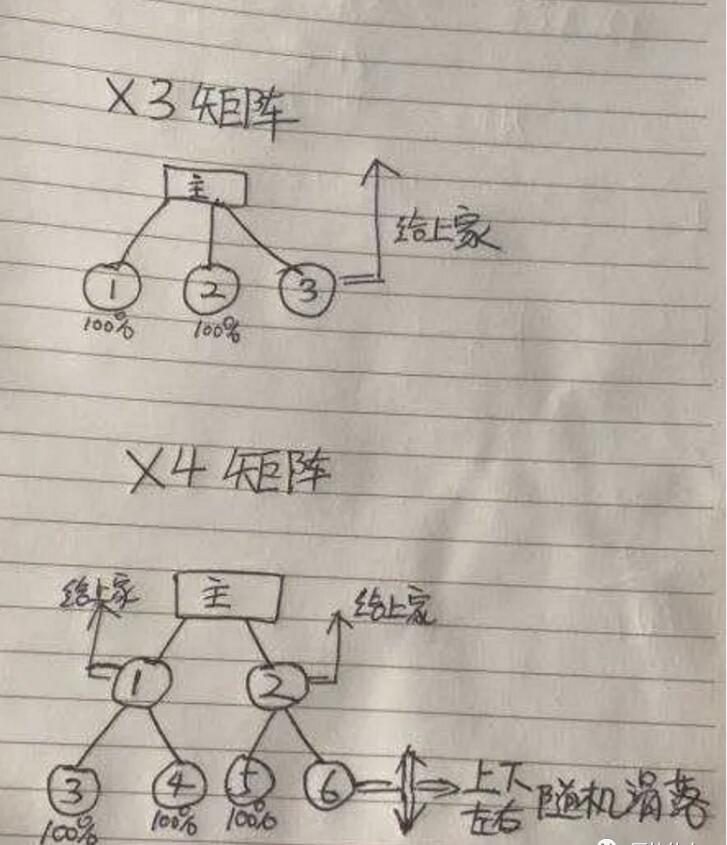 X3矩阵
主
给上家
1 2 3
100% 100%
X4矩阵
给上家 主 给上家
1 2
3 4 5 6 上下 随机滑落
左右
100% 100% 100%